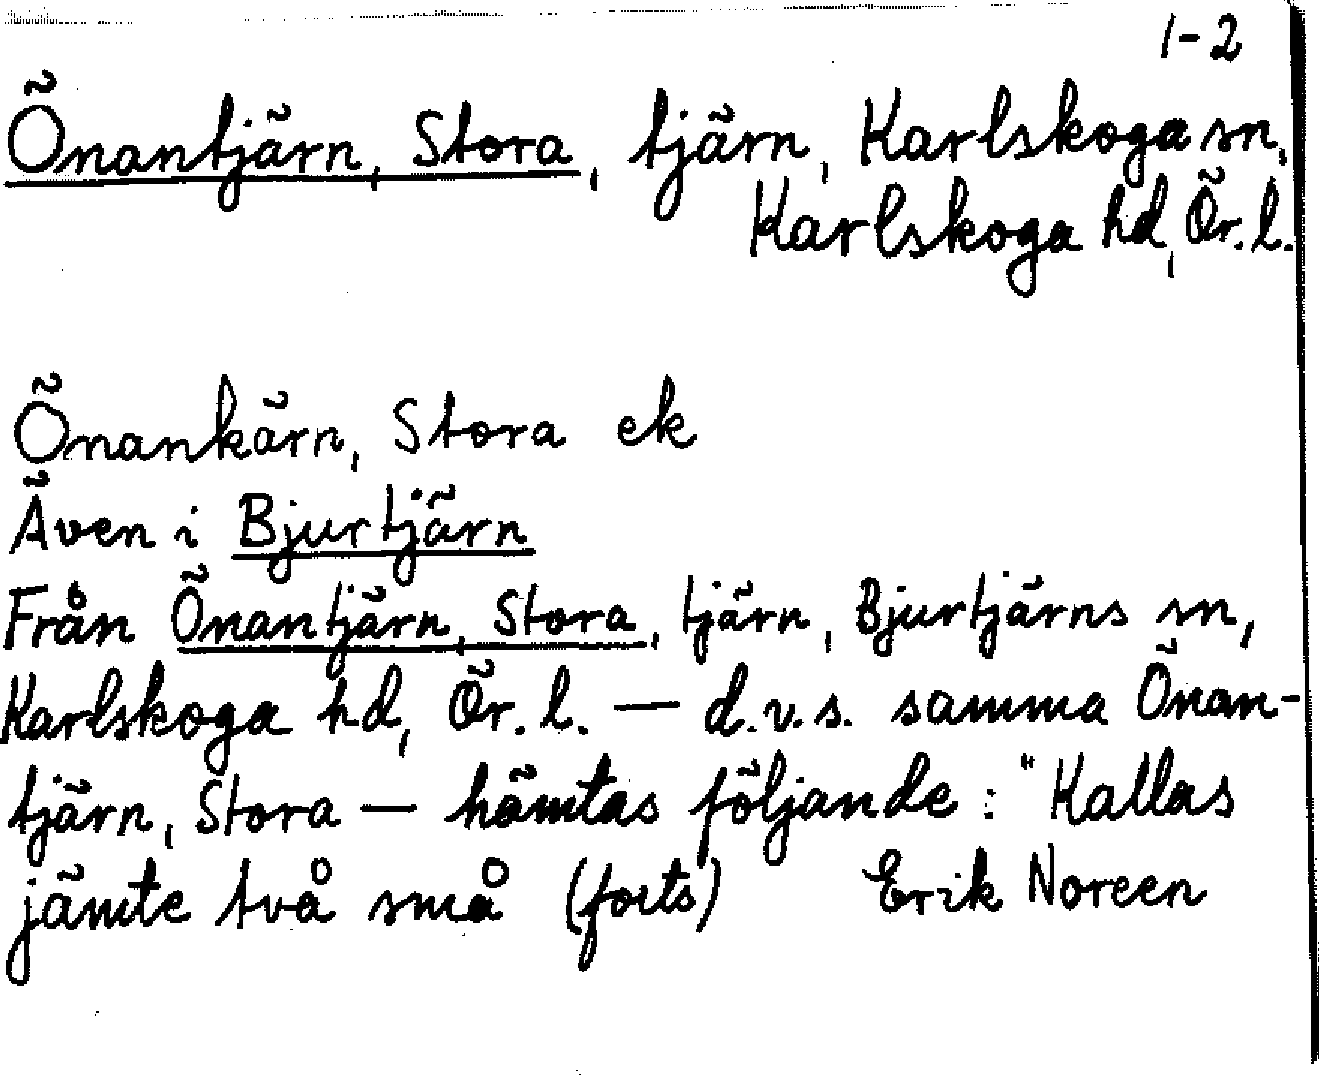 1-2
Önantjärn, Stora, tjärn, Karlskoga sn,
Karlskoga hd, Ör. l.
Önankärn, Stora ek
Även i Bjurtjärn
Från Önantjärn, Stora, tjärn, Bjurtjärns sn,
Karlskoga hd, Ör. l. — d.v.s. samma Önan-
tjärn, Stora — hämtas följande: "Kallas
jämte två små (forts) Erik Noreen